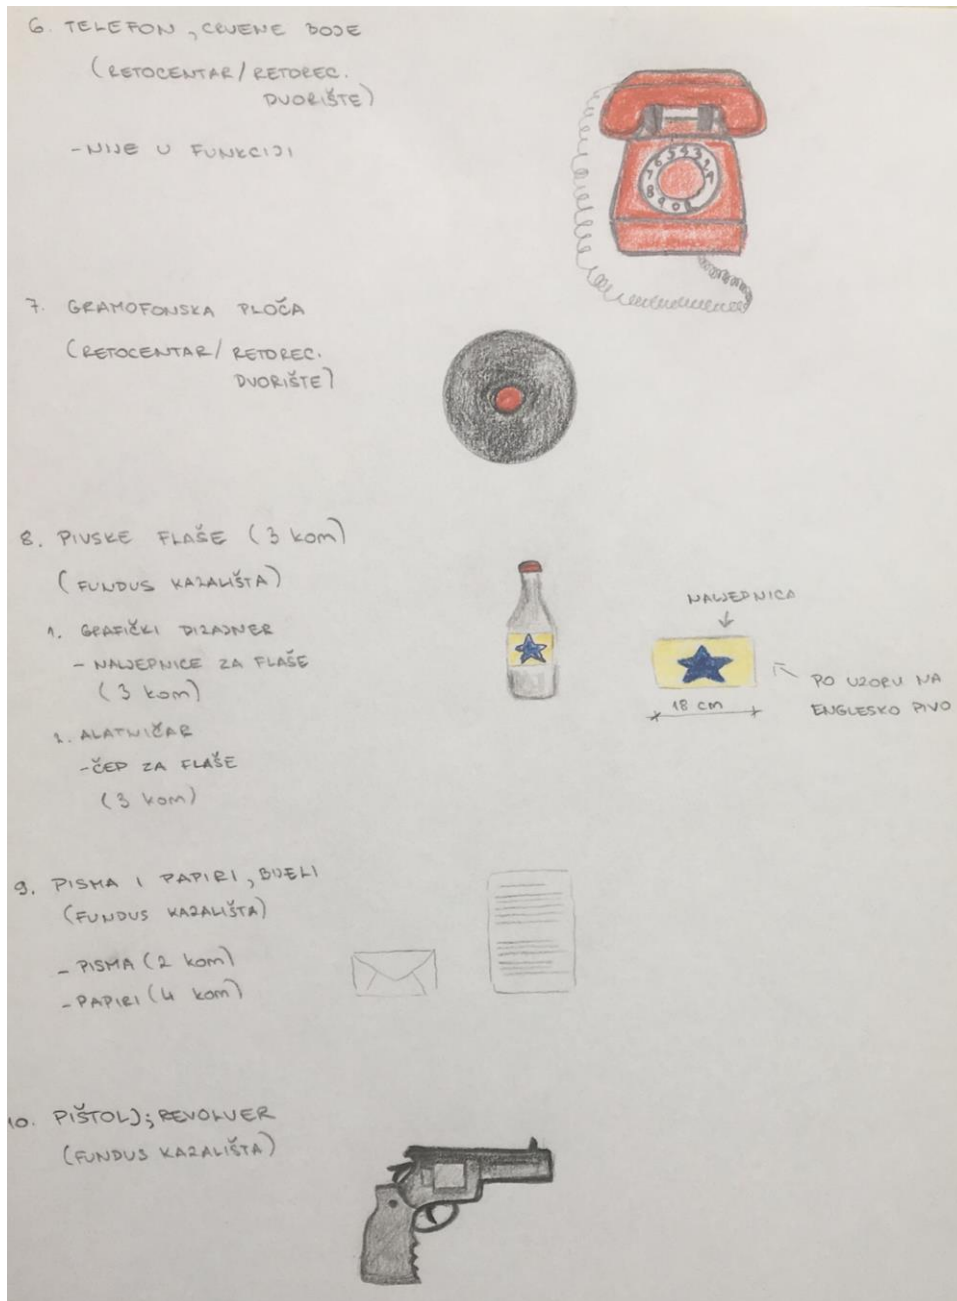 6. TELEFON, CRVENE BOJE
(RETOCENTAR/RETOREC.
DVORIŠTE)
- NIJE U FUNKCIJI
7. GRAMOFONSKA PLOČA
(RETOCENTAR/ RETOREC.
DVORIŠTE)
8. PIVSKE FLAŠE (3 kom)
(FUNDUS KAZALIŠTA)
1. GRAFIČKI DIZAJNER
- NALJEPNICE ZA FLAŠE
(3 kom)
2. ALATNIČAR
- ČEP ZA FLAŠE
(3 kom)
NALJEPNICA
PO UZORU NA
ENGLESKO PIVO
18 cm
9. PISMA I PAPIRI, BIJELI
(FUNDUS KAZALIŠTA)
- PISMA (2 kom)
- PAPIRI (4 kom)
10. PIŠTOLJ; REVOLVER
(FUNDUS KAZALIŠTA)